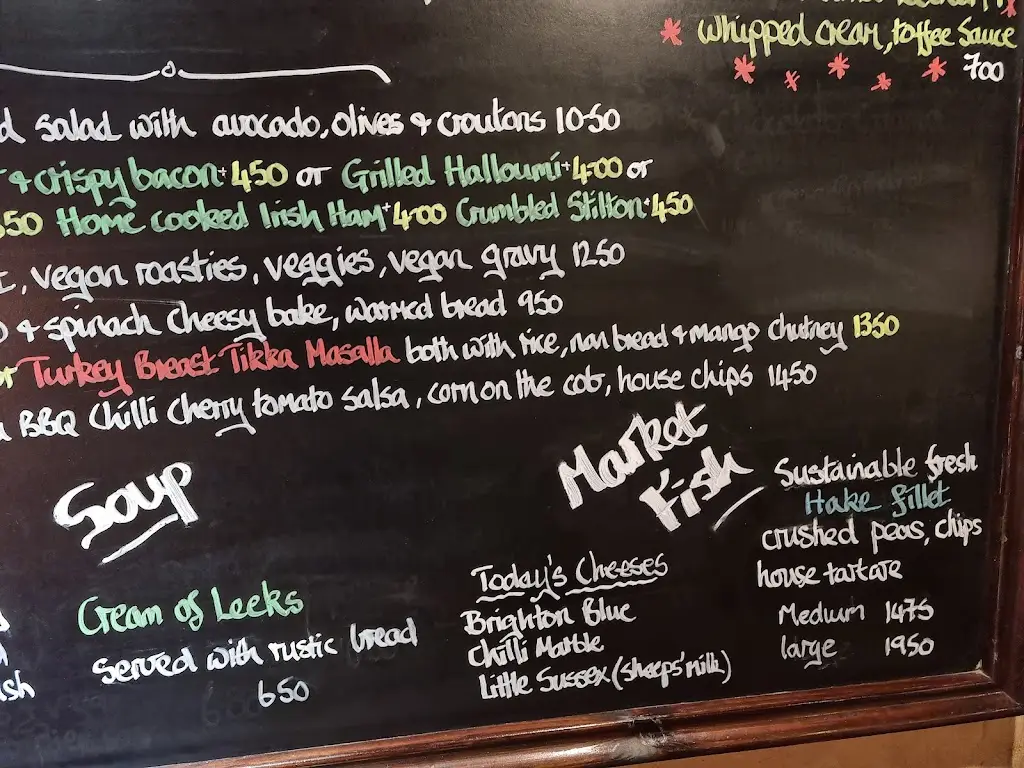 whipped cream, toffee sauce
700
salad with avocado, olives & croutons 10-50
& crispy bacon + 450 or Grilled Halloumi + 4-00 or
50 Home cooked Irish Ham + 4-00 Crumbled Stilton + 450
, vegan roasties, veggies, vegan gravy 1250
& spinach cheesy bake, warmed bread 950
or Turkey Breast Tikka Masalla both with rice, nan bread & mango chutney 1350
BBQ Chilli Cherry tomato salsa, corn on the cob, house chips 1450
Soup
Cream of Leeks
served with rustic bread
650
Today's Cheeses
Brighton Blue
Chilli Marble
Little Sussex (sheeps' milk)
Market
Fish
Sustainable fresh
Hake fillet
crushed peas, chips
house tartare
Medium 1475
large 1950